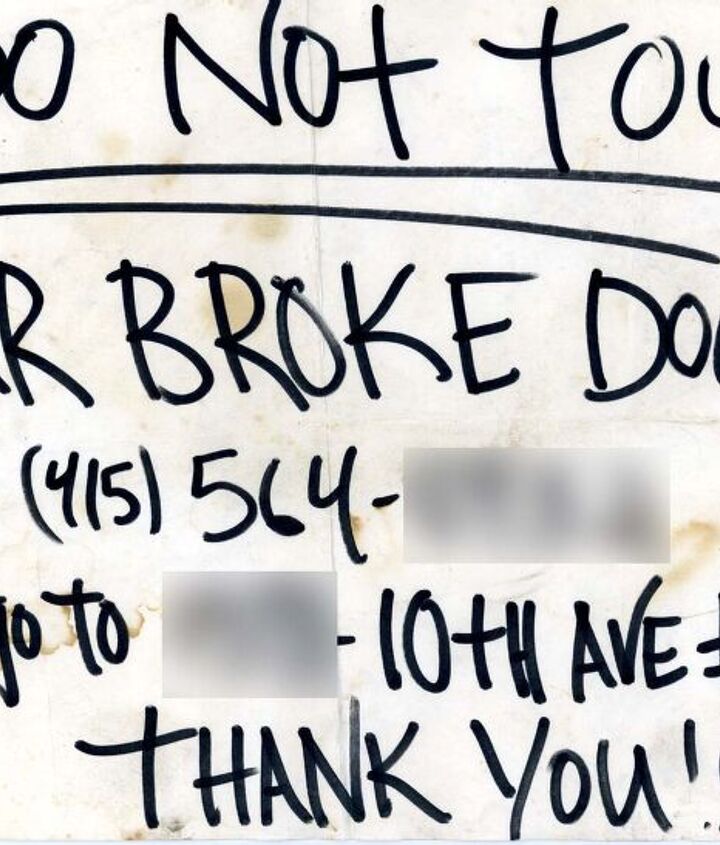 DO NOT TOU
R BROKE DOW
(415) 564-
go to - 10TH AVE #
THANK YOU!!